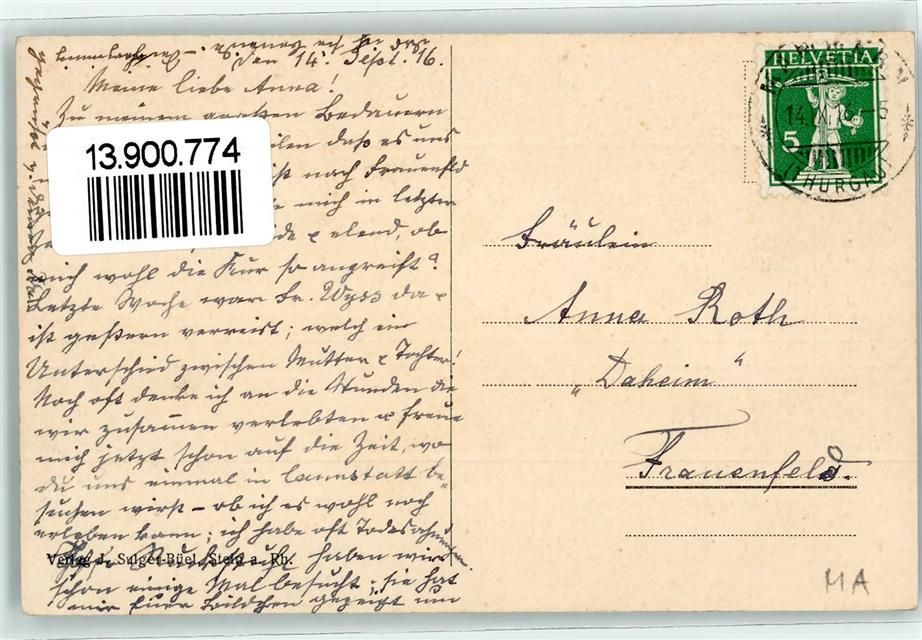 den 14. Sept. 16.
Meine liebe Anna!
Zu meinem großen Bedauern
daß es uns
nach Frauenfeld
mich in letzter
elend, ob
mich wohl die Kur so angreift?
Letzte Woche war Fr. Wyss da &
ist gestern verreist; welch ein
Unterschied zwischen Mutter & Tochter!
Noch oft denke ich an die Stunden die
wir zusammen verlebten & freue
mich jetzt schon auf die Zeit, wo
du uns einmal in Cannstatt be-
suchen wirst – ob ich es wohl noch
erleben kann; ich habe oft Todesahnungen
haben wir
schon einige Mal besucht; sie hat
mir Euer Bildchen gezeigt und
Verlag J. Sulger-Büel, Stein a. Rh.
13.900.774
HELVETIA
5
14. IX. 16. - 5
(THURGAU)
Fräulein
Anna Roth
„Daheim“
Frauenfeld.
MA